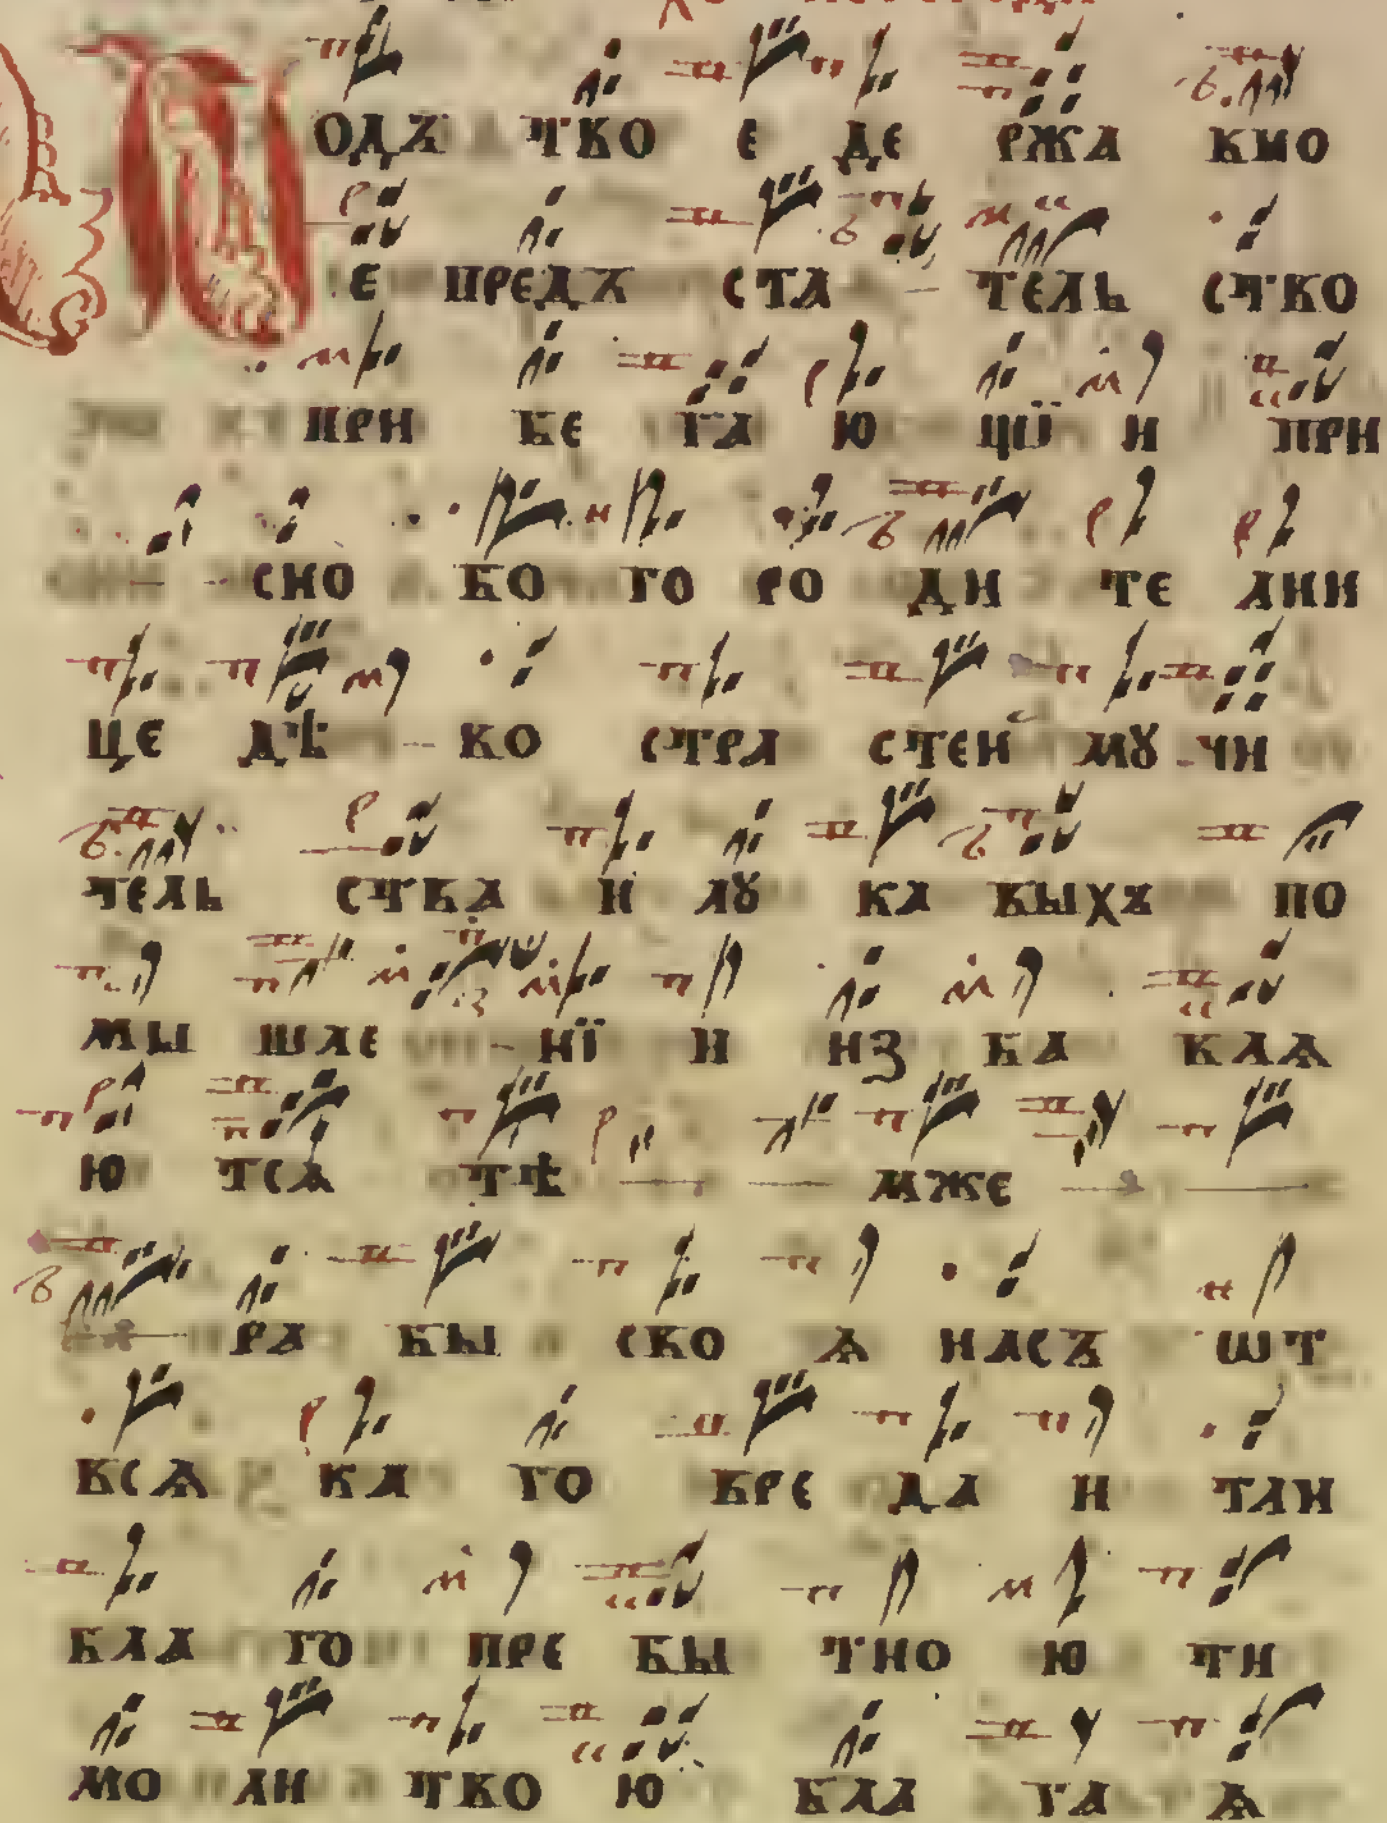 ОДЪ ТВО Е ДЕ РЖА ВНО
Е ПРЕДЪ СТА – ТЕЛЬ СТВО
ПРИ БЕ ГА Ю ЩІЇ И ПРИ
СНО БО ГО РО ДИ ТЕ ЛНИ
ЦЕ ДѢ – ВО СТРА СТЕН МꙊ ЧИ
ТЕЛЬ СТВА И ЛꙊ КА ВЫХЪ ПО
МЫ ШЛЕ – НЇ И ИЗ БА ВЛѦ
Ю ТСѦ ТѢ – – МЖЕ – –
РА БЫ СВО Ѧ НАСЪ ѾТ
ВСѦ КА ГО ВРЕ ДА И ТАИ
БЛА ГО ПРЕ БЫ ТНО Ю ТИ
МО ЛИ ТВО Ю БЛА ГА Ѧ